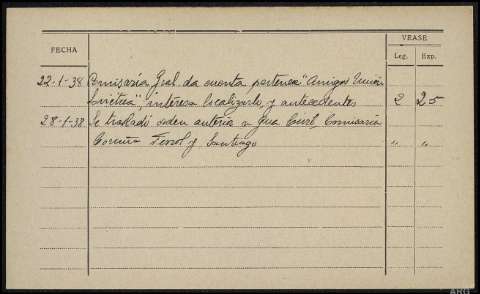 FECHA
VEASE
Leg. Exp.
22-1-38 Comisaria Gral. da cuenta pertenece "Amigos Unión
Sovietica", interesa localizarlo, y antecedentes 2 25
28-1-38 Se trasladó orden anterior a Gua Civil, Comisaría
Coruña Ferrol y Santiago " "